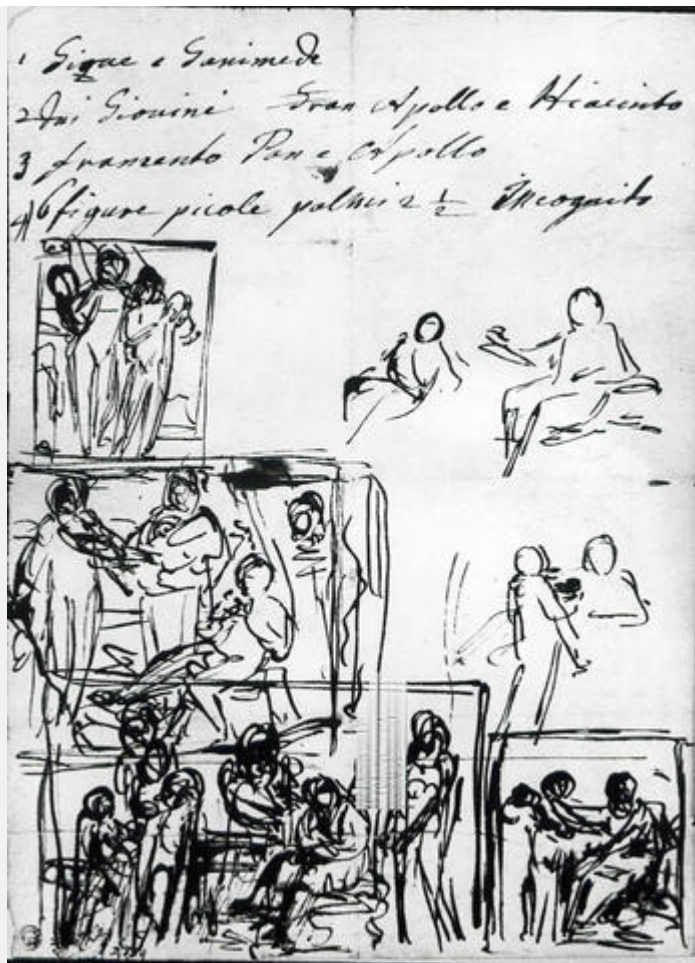 1 Gique e Ganimede
2 Dui Giovini Gran Apollo e Hiacinto
3 framento Pan e Apollo
4 6 figure picole palmi 2 1/2 Incognito